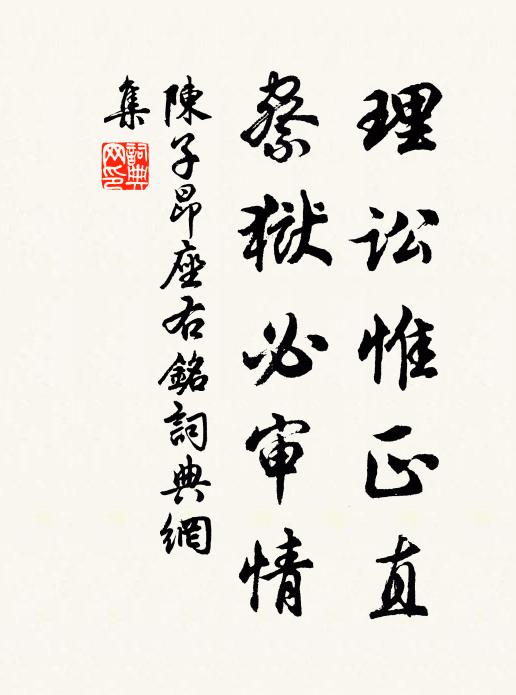 理讼惟正直
察獄必审情
陳子昂座右銘詞典網
集
詞典
网印